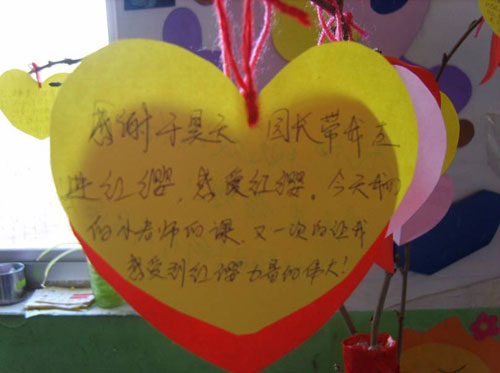 感谢于昊天 园长带我走
进红缨,感爱红缨。今天
的小老师的课,又一次的让我
感受到红缨 的伟大!